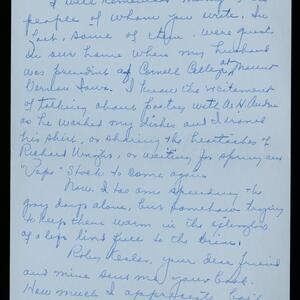 I well remember many of the
people of whom you write. In
fact, some of them were guests
in our home when my husband
was president of Cornell College at Mount
Vernon Iowa. I know the excitement
of talking about poetry with W. H. Auden
as he washed my dishes and I ironed
his shirt, or sharing the heartaches of
Richard Wright, or waiting for spring and
"Papa-Stork to come again.
Now I too am spending the
gray days alone, but somehow trying
to keep them warm in the
of a log fire
Roby Kesler, your dear friend
and mine sent me your book.
How much I appreciate